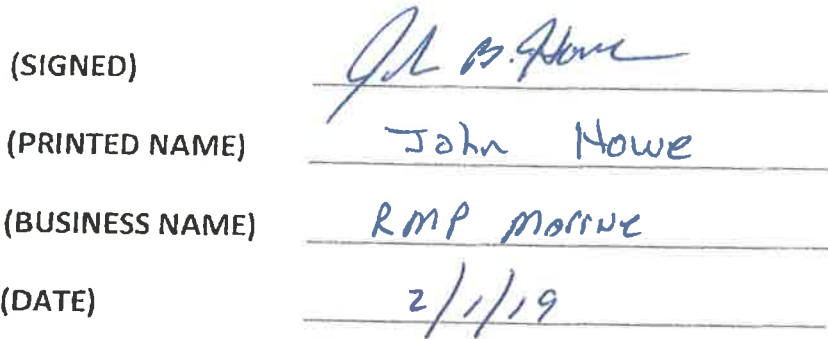 (SIGNED) John B. Howe
(PRINTED NAME) John Howe
(BUSINESS NAME) RMP Marine
(DATE) 2/1/19